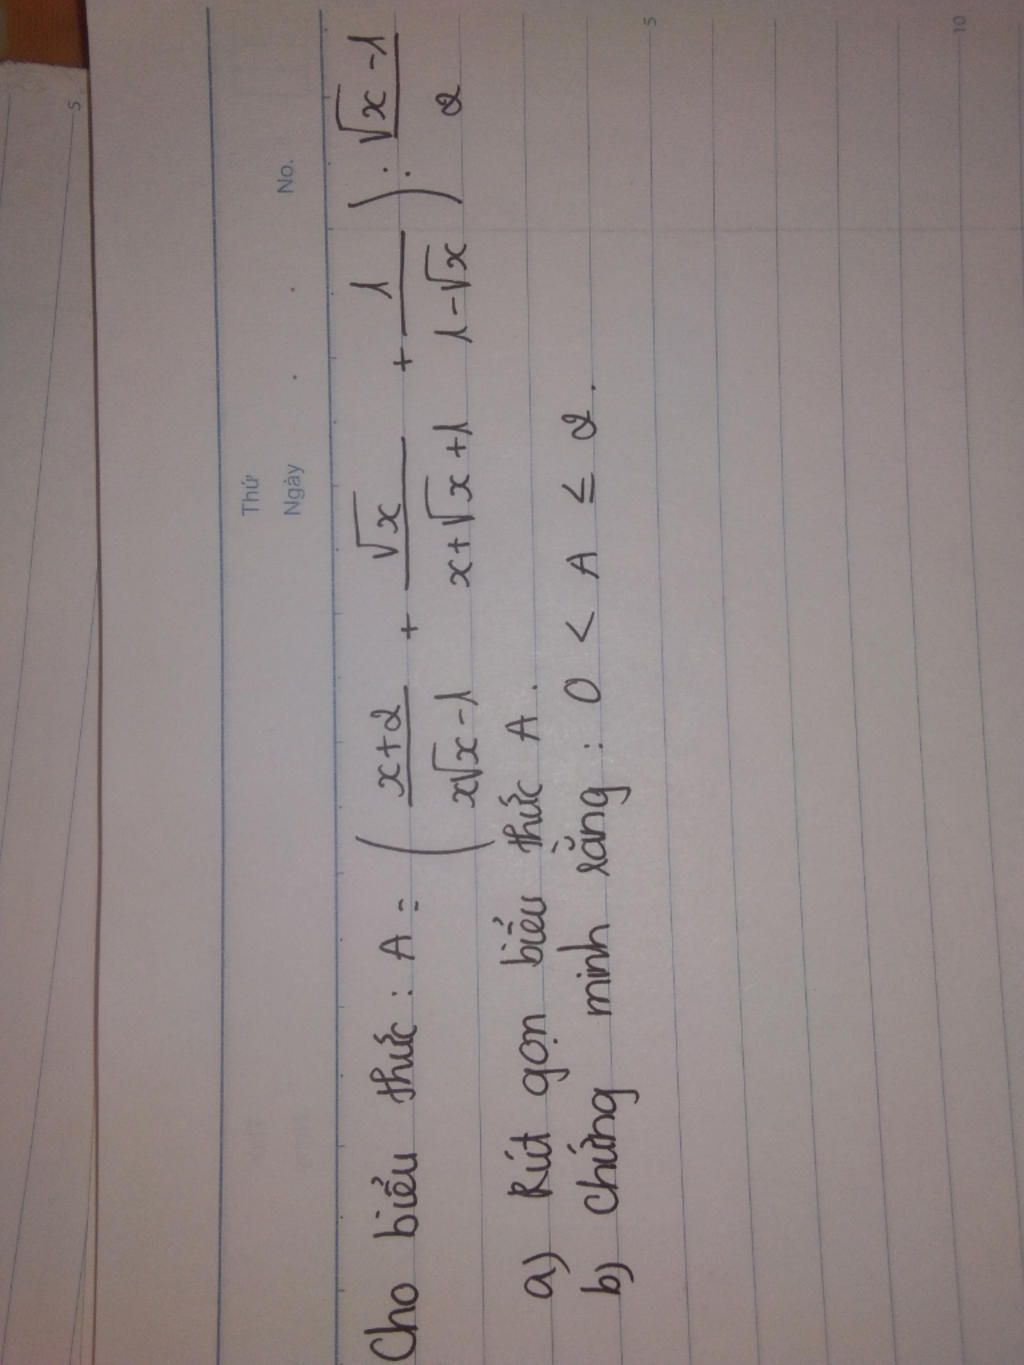 Thứ
Ngày . . No.
Cho biểu thức : A = ( \frac{x+2}{x√x-1} + \frac{√x}{x+√x+1} + \frac{1}{1-√x} ) : \frac{√x-1}{2}
a) Rút gọn biểu thức A.
b) Chứng minh rằng : 0 < A ≤ 2.
5
10
5